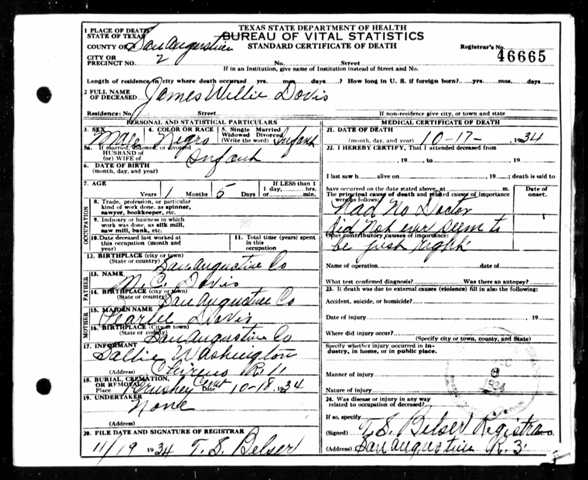 TEXAS STATE DEPARTMENT OF HEALTH
BUREAU OF VITAL STATISTICS
STANDARD CERTIFICATE OF DEATH
1 PLACE OF DEATH
STATE OF TEXAS
COUNTY OF San Augustine
CITY OR PRECINCT NO. 2 No. Street
Registrar's No. 46665
If in an Institution, give name of Institution instead of Street and No.
Length of residence in city where death occurred yrs. mos. days. How long in U. S. if foreign born? yrs. mos. days
2 FULL NAME OF DECEASED James Willie Dovis
Residence: No. Street
If non-residence give city, or town and state
PERSONAL AND STATISTICAL PARTICULARS
3. SEX Male
4. COLOR OR RACE Negro
5. Single Married Widowed Divorced (Write the word) Infant
5a. If married, widowed, or divorced
HUSBAND OF (or) WIFE OF Infant
6. DATE OF BIRTH (month, day, and year)
7. AGE Years 1 Months 5 Days
IF LESS THAN 1 day, hrs. or min.
OCCUPATION
8. Trade, profession, or particular kind of work done, as spinner, sawyer, bookkeeper, etc.
9. Industry or business in which work was done, as silk mill, saw mill, bank, etc.
10. Date deceased last worked at this occupation (month and year)
11. Total time (years) spent in this occupation
12. BIRTHPLACE (city or town) (State or country) San Augustine Co
FATHER
13. NAME M. C. Dovis
14. BIRTHPLACE (city or town) (State or country) San Augustine Co
MOTHER
15. MAIDEN NAME Pearlie Dovis
16. BIRTHPLACE (city or town) (State or country) San Augustine Co
17. INFORMANT Sallie Washington
(Address) Chireno R 11
18. BURIAL, CREMATION, OR REMOVAL
Place Cemt Date 10-18, 34
19. UNDERTAKER None
(Address)
20. FILE DATE AND SIGNATURE OF REGISTRAR
11/19 1934 T. S. Belser
MEDICAL CERTIFICATE OF DEATH
21. DATE OF DEATH (month, day, and year) 10-17- 1934
22. I HEREBY CERTIFY, That I attended deceased from
, 19 , to , 19
I last saw h alive on , 19 ; death is said to
have occurred on the date stated above, at m.
The principal cause of death and related causes of importance were as follows:
Date of onset.
Had No Doctor
Did Not ever seem to
Other contributory causes of importance:
be just right
Name of operation date of
What test confirmed diagnosis? Was there an autopsy?
23. If death was due to external causes (violence) fill in also the following:
Accident, suicide, or homicide?
Date of injury , 19
Where did injury occur?
(Specify city or town, county, and State)
Specify whether injury occurred in Industry, in home, or in public place.
Manner of injury
Nature of injury
24. Was disease or injury in any way related to occupation of deceased?
If so, specify
(Signed) T. S. Belser Registrar
(Address) San Augustine R. 3.